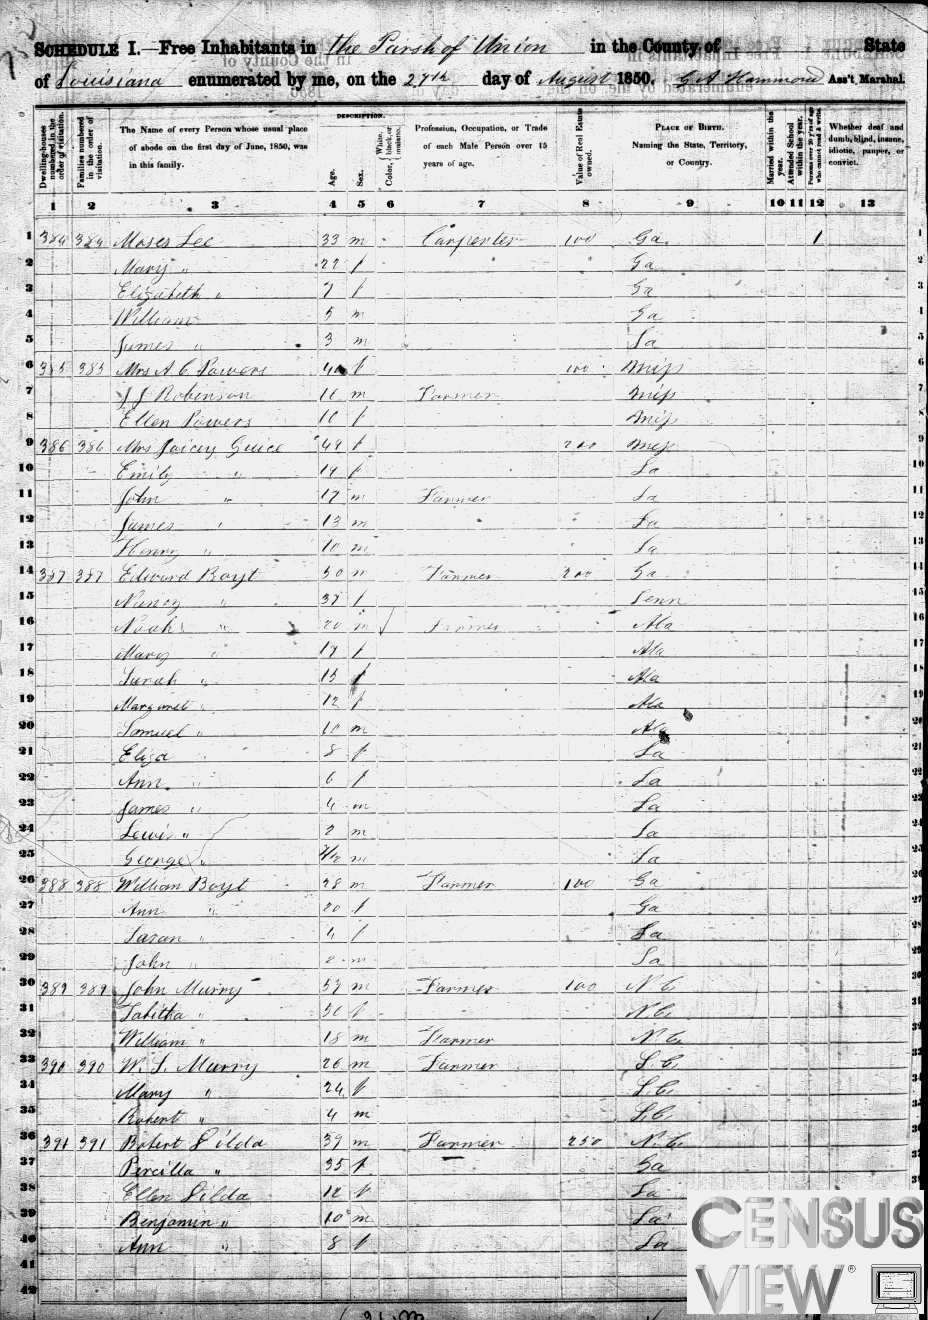 SCHEDULE I.—Free Inhabitants in the Parish of Union in the County of State
of Louisiana enumerated by me, on the 27th day of August 1850. Ass't Marshal.
DESCRIPTION.
Dwelling-houses numbered in the order of visitation.
Families numbered in the order of visitation.
The Name of every Person whose usual place of abode on the first day of June, 1850, was in this family.
Age.
Sex.
Color, White, black, or mulatto.
Profession, Occupation, or Trade of each Male Person over 15 years of age.
Value of Real Estate owned.
PLACE OF BIRTH.
Naming the State, Territory, or Country.
Married within the year.
Attended School within the year.
Persons over 20 y'rs of age who cannot read & write.
Whether deaf and dumb, blind, insane, idiotic, pauper, or convict.
1 2 3 4 5 6 7 8 9 10 11 12 13
1 384 384 Moses Lee 33 m Carpenter 100 Ga. 1 1
2 Mary " 22 f Ga 2
3 Elizabeth " 7 f Ga 3
4 William 5 m Ga 4
5 James " 3 m La 5
6 385 385 Mrs A C Powers 40 f 100 Miss 6
7 J J Robinson 16 m Farmer Miss 7
8 Ellen Powers 16 f Miss 8
9 386 386 Mrs Guice 49 f 200 Miss 9
10 Emily " 19 f La 10
11 John " 17 m Farmer La 11
12 James " 13 m La 12
13 Henry " 10 m La 13
14 387 387 Edward Boyt 50 m Farmer 200 Ga 14
15 Nancy " 37 f Tenn 15
16 Noah " 20 m Farmer Ala 16
17 Mary " 17 f Ala 17
18 Sarah " 15 f Ala 18
19 Margaret " 12 f Ala 19
20 Samuel " 10 m Ala 20
21 Eliza " 8 f La 21
22 Ann " 6 f La 22
23 James " 4 m La 23
24 Lewis " 2 m La 24
25 George " m La 25
26 388 388 William Boyt 28 m Farmer 100 Ga 26
27 Ann " 20 f Ga 27
28 Saran " 4 f La 28
29 John " m La 29
30 389 389 John Murry 57 m Farmer 100 N C 30
31 Tabitha " 50 f N.C. 31
32 William " 18 m Farmer N C. 32
33 390 390 W. L. Murry 26 m Farmer S.C. 33
34 Mary " 24 f S.C. 34
35 Robert " 4 m S.C. 35
36 391 391 Robert Silda 39 m Farmer 250 N.C 36
37 Percilla " 35 f Ga
38 Ellen Silda 12 f La
39 Benjamin " 10 m La
40 Ann " 8 f La
41
42
CENSUS
VIEW ®